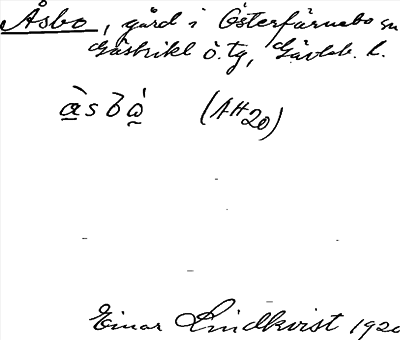 Åsbo, gård i Österfärnebo sn
Gästrikl ö. tg, Gävleb. l.
àsbò̲ (AH20)
Einar Lindkvist 1920